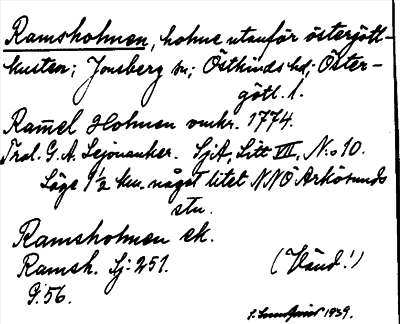 Ramsholmen, holme utanför östergötl-
kusten; Jonsberg sn; Östkinds hd; Öster-
götl. l.
Ram̄el Holmen omkr. 1774.
G. A. Lejonanker. SjA, Litt VII, N:o 10.
Läge 9 1/2 km. något litet NNÖ Arkösunds
stn.
Ramsholmen ek.
Ramsh. Sj: 251.
G:56.
(Vänd!)
1939.